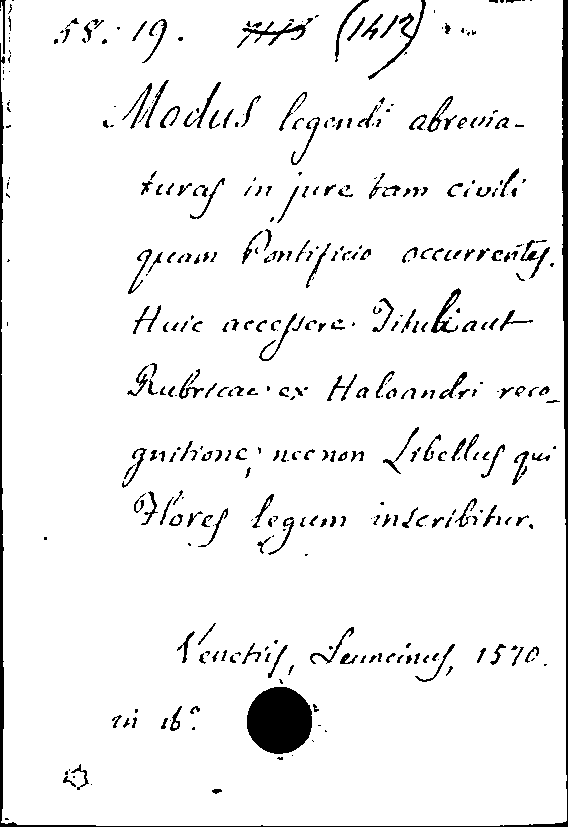 58. 19. 7113 (1412)
Modus legendi abrevia-
turas in jure tam civili
quam Pontificio occurrentes.
Huic accessere Tituli aut
Rubricae ex Haloandri reco-
gnitione; nec non Libellus qui
Flores legum inscribitur.
Venetiis, 1570.
in 16º